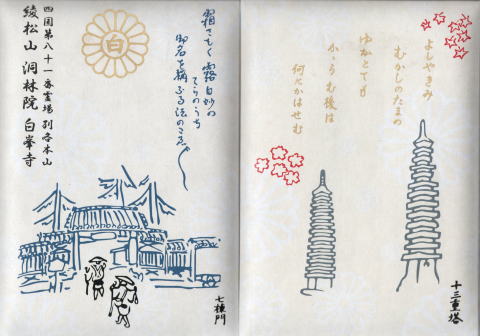 四国第八十一番霊場 別格本山
綾松山 洞林院 白峯寺
白
霜さむく 露白妙の
てらのうち
御名を称ふる法のこゑ〲
七棟門
よしやきみ
むかしのたまの
ゆかとても
かゝらむ後は
何にかはせむ
十三重塔